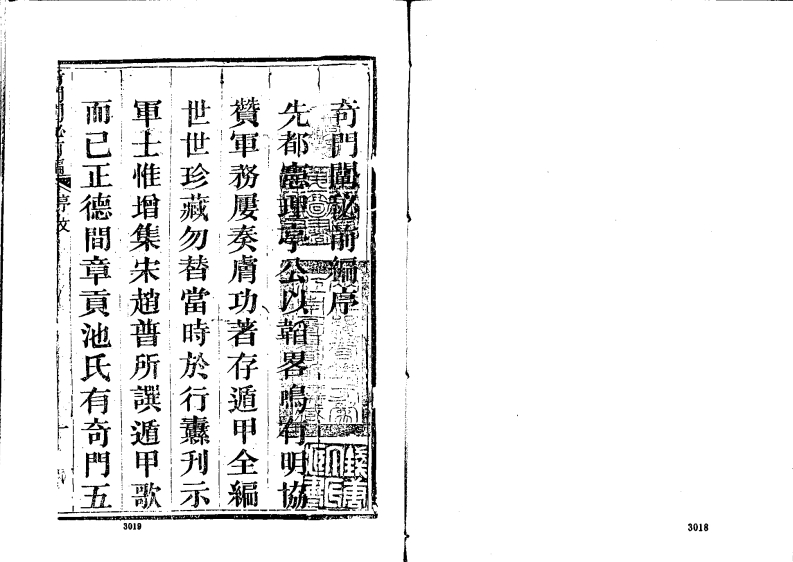 奇門闡秘前編序
先都憲理亭公以韜畧鳴有明協
贊軍務屢奏膚功著存遁甲全編
世世珍藏勿替當時於行橐刊示
軍士惟增集宋趙普所譔遁甲歌
而已正德間章貢池氏有奇門五
3019
3018